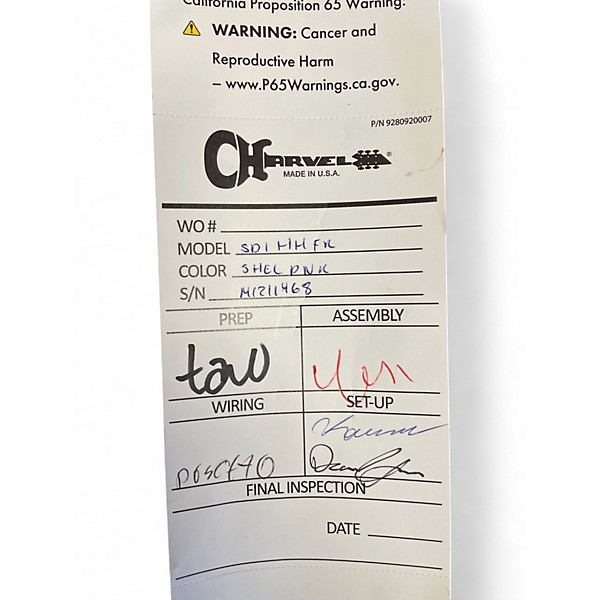 California Proposition 65 Warning:
WARNING: Cancer and
Reproductive Harm
– www.P65Warnings.ca.gov.
P/N 9280920007
CHARVEL®
MADE IN U.S.A.
WO #
MODEL SD1 HH FR
COLOR SHEL PNK
S/N
PREP ASSEMBLY
taw
WIRING SET-UP
FINAL INSPECTION
DATE